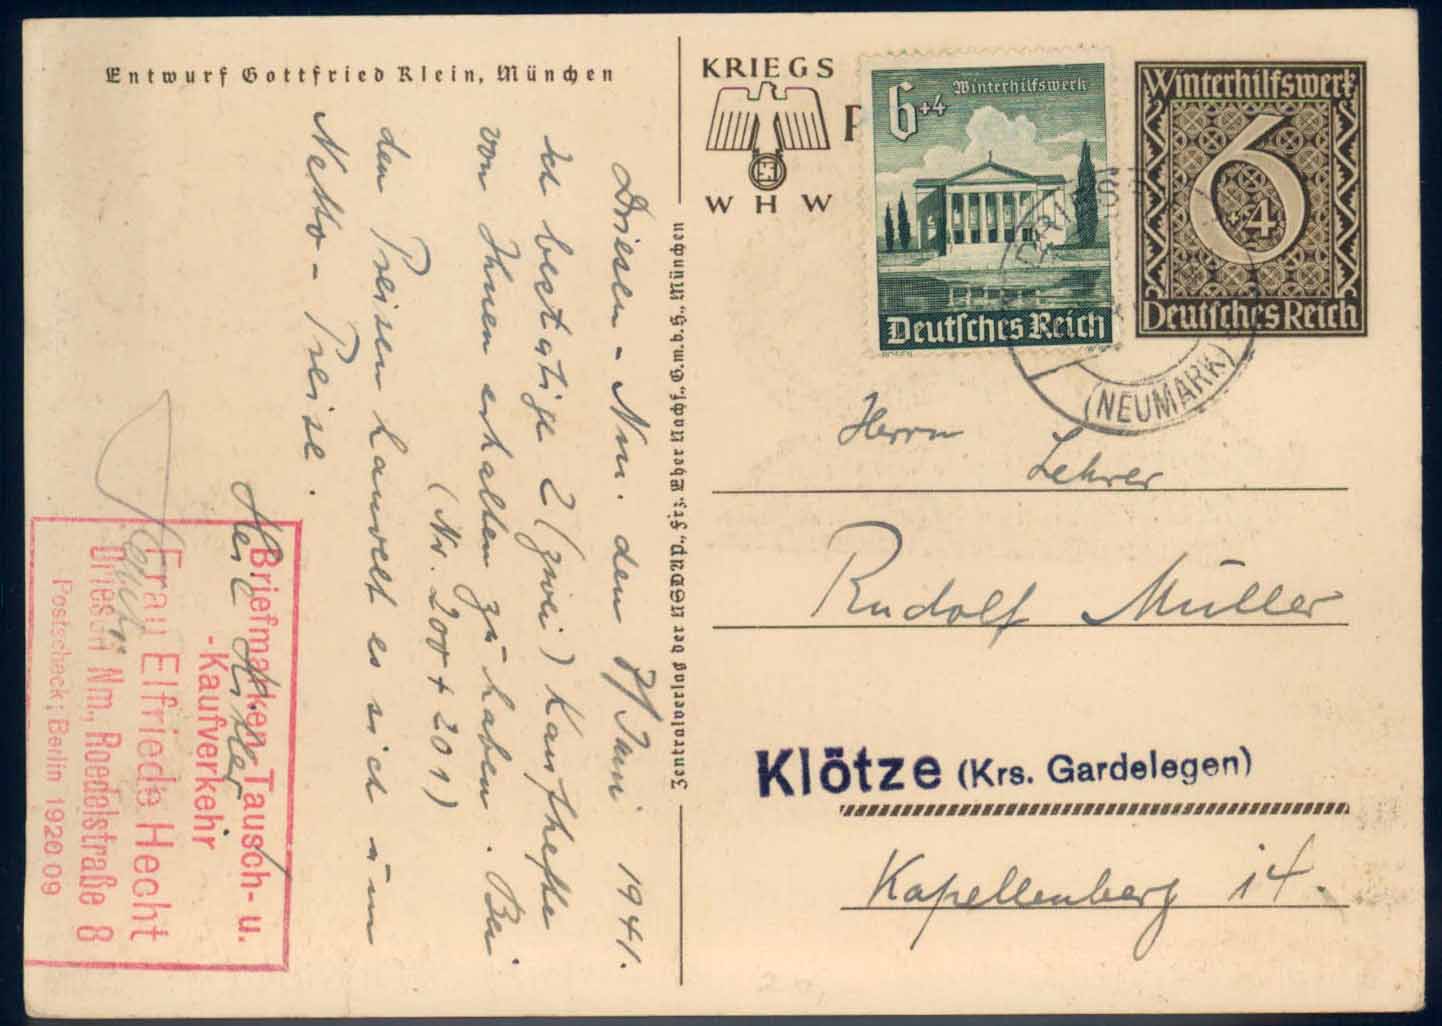 Entwurf Gottfried Klein, München
Driesen - Nm. dem 7/Juni 1941.
Ich bestätige 2 (zwei) Kaufhefte
von Ihnen erhalten zu haben. Bei
(Nr. 200 + 201)
den Preisen handelt es sich um
Netto - Preise.
Heil Hitler
Briefmarken-Tausch- u.
-Kaufverkehr
Frau Elfriede Hecht
Driesen Nm., Roedelstraße 8
Postscheck: Berlin 1920 09
Zentralverlag der NSDAP., Frz. Eher Nachf., G.m.b.H., München
KRIEGS
WHW
P
6+4 Winterhilfswerk
Deutsches Reich
Winterhilfswerk
6
+4
Deutsches Reich
DRIESEN
(NEUMARK)
Herrn
Lehrer
Rudolf Müller
Klötze (Krs. Gardelegen)
Kapellenberg 14.